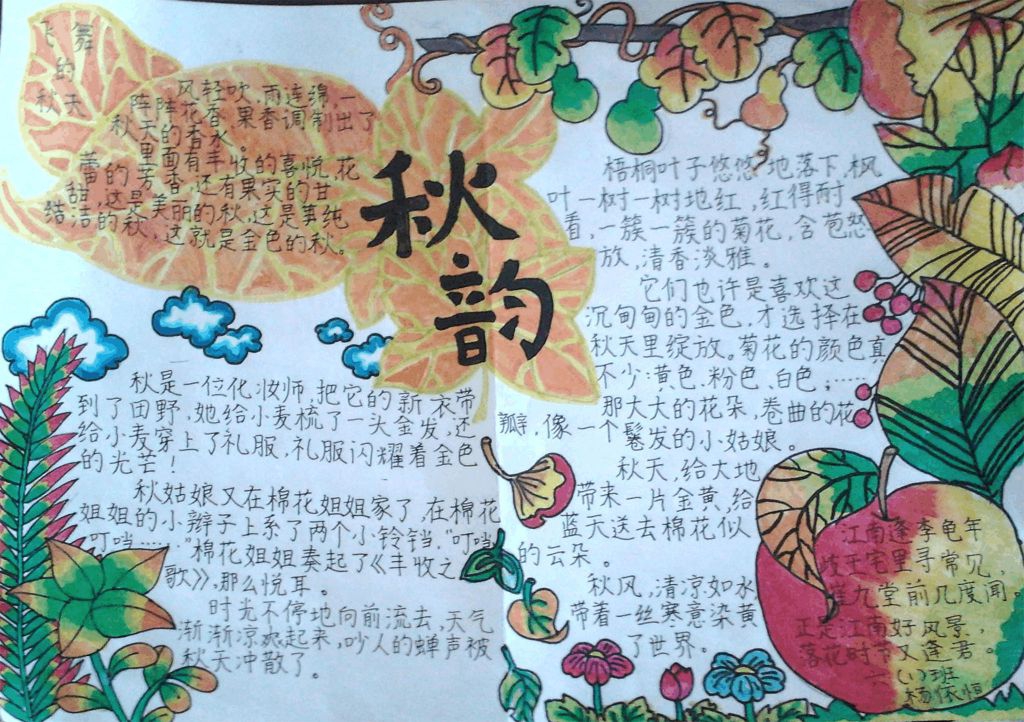 飞舞
的
秋天
风轻吹,雨连绵,一
阵阵花香、果香调制出了
秋天的香水。
里面有丰收的喜悦,花
蕾的芳香,还有果实的甘
甜,这是美丽的秋,这是事纯
结洁的秋,这就是金色的秋。
秋
韵
秋是一位化妆师,把它的新衣带
到了田野,她给小麦梳了一头金发,还
给小麦穿上了礼服,礼服闪耀着金色
的光芒!
秋姑娘又在棉花姐姐家了,在棉花
姐姐的小辫子上系了两个小铃铛,“叮当
叮当……”棉花姐姐奏起了《丰收之
歌》,那么悦耳。
时光不停地向前流去,天气
渐渐凉起来,吵人的蝉声被
秋天冲散了。
梧桐叶子悠悠地落下,枫
叶一树一树地红,红得耐
看,一簇一簇的菊花,含苞怒
放,清香淡雅。
它们也许是喜欢这
沉甸甸的金色,才选择在
秋天里绽放。菊花的颜色真
不少:黄色、粉色、白色;……
那大大的花朵,卷曲的花
瓣,像一个鬈发的小姑娘。
秋天,给大地
带来一片金黄,给
蓝天送去棉花似
的云朵。
秋风,清凉如水
带着一丝寒意染黄
了世界。
江南逢李龟年
岐王宅里寻常见,
崔九堂前几度闻。
正是江南好风景,
落花时节又逢君。
六(1)班
杨依恒